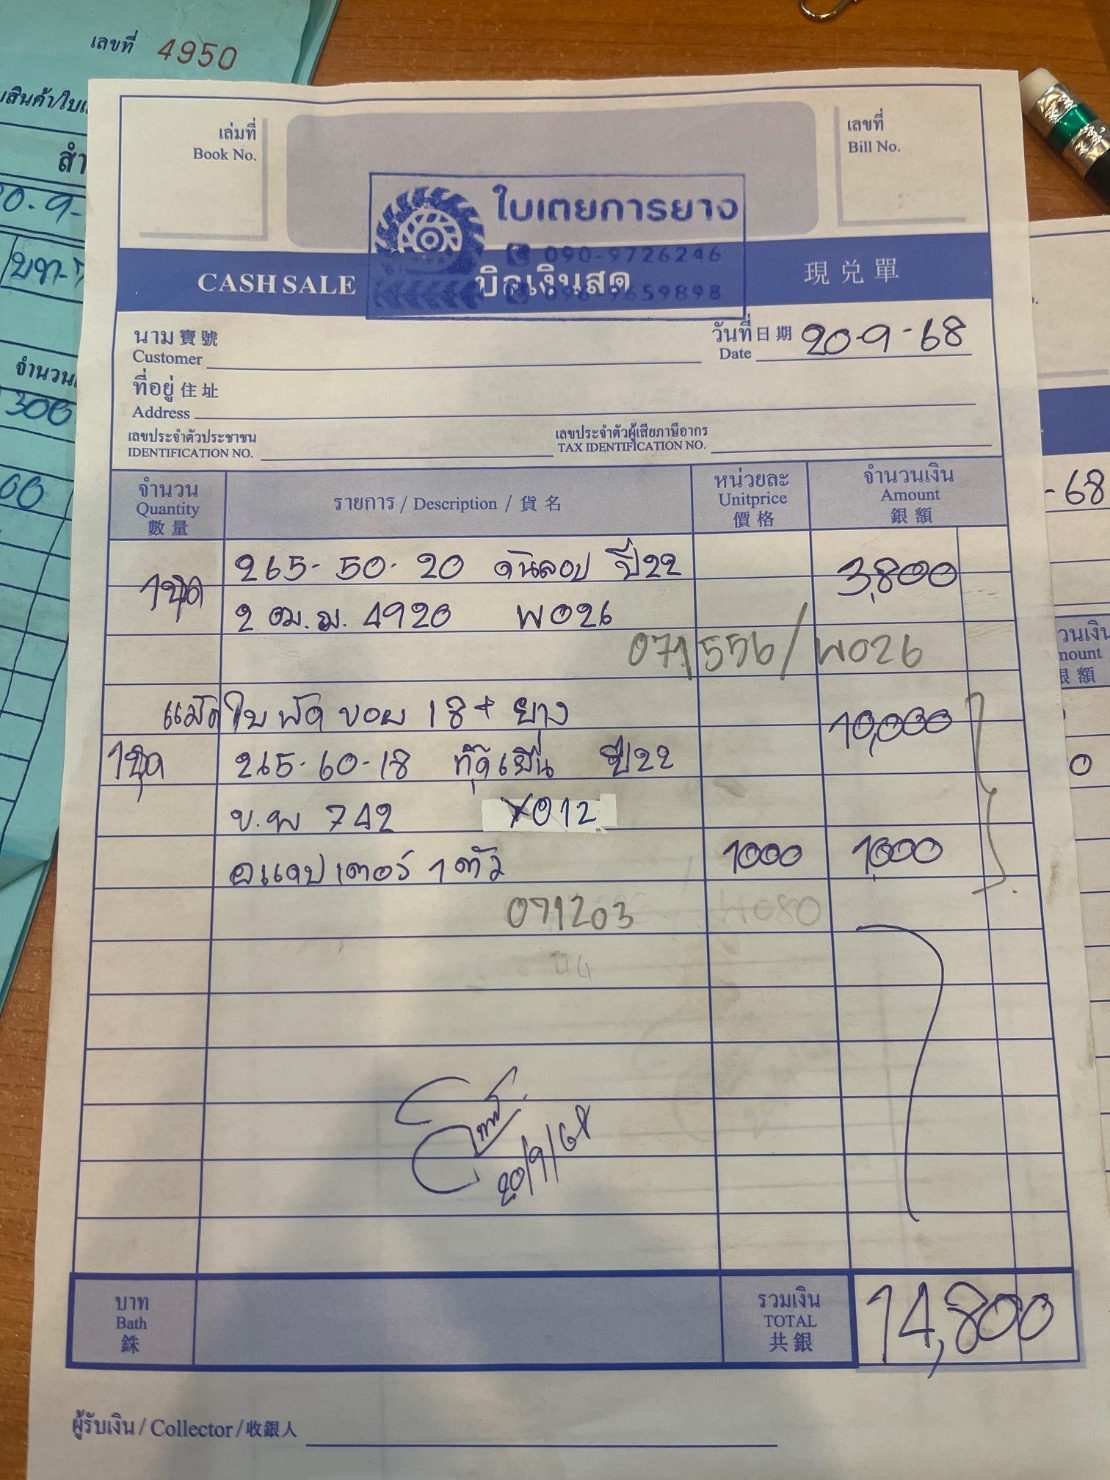 เลขที่ 4950
เล่มที่
Book No.
เลขที่
Bill No.
ใบเตยการยาง
090-9726246
CASH SALE
บิลเงินสด
現兌單
นาม 寶號
Customer
วันที่ 日期
Date 20-9-68
ที่อยู่ 住址
Address
เลขประจำตัวประชาชน
IDENTIFICATION NO.
เลขประจำตัวผู้เสียภาษีอากร
TAX IDENTIFICATION NO.
จำนวน
Quantity
數量
รายการ / Description / 貨名
หน่วยละ
Unitprice
價格
จำนวนเงิน
Amount
銀額
1ชุด 265-50-20 ดันลอป ปี22 3,800
2 ฒ.ฌ. 4920 W026
071556/W026
แม็ก ใบพัด ขอบ 18+ ยาง 10,000
1ชุด 265-60-18 ปี22
ข.พ 742 X012
อแดปเตอร์ 1 ตัว 1000 1,000
071203 4080
20/9/68
บาท
Bath
銖
รวมเงิน
TOTAL
共銀
14,800
ผู้รับเงิน / Collector / 收銀人
-68
จำนวน
300